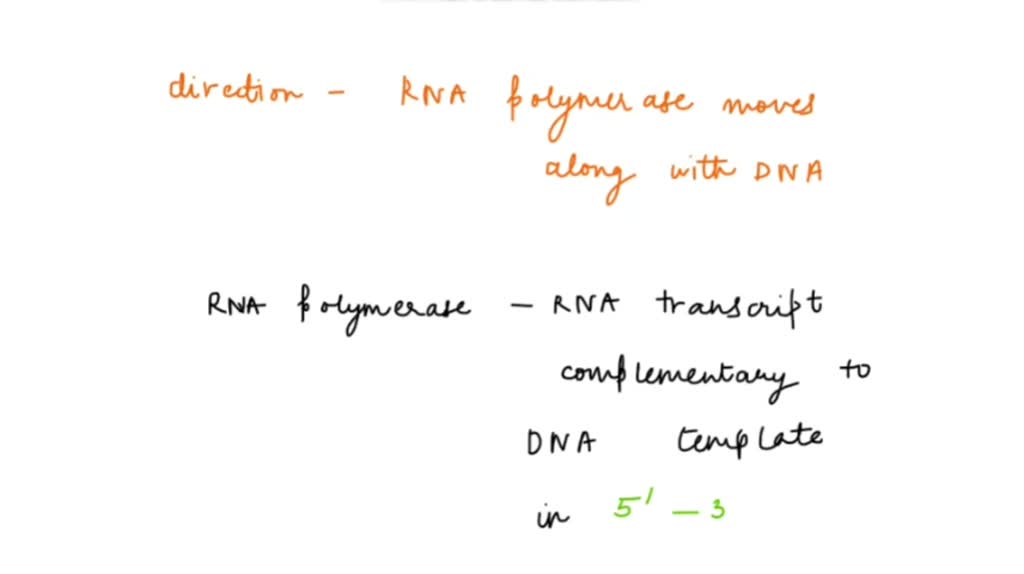 direction - RNA polymerase moves
along with DNA
RNA polymerase - RNA transcript
complementary to
DNA template
in 5' - 3